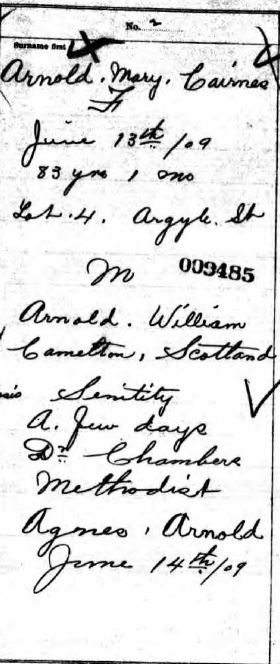 No. 2
Surname first
Arnold. Mary. Cairnes
F
June 13th/09
83 yrs 1 mo
Lot. 4. Argyle. St
M
009485
Arnold. William
Camelton, Scotland
Senility
A. Few days
Dr. Chambers
Methodist
Agnes, Arnold
June 14th/09